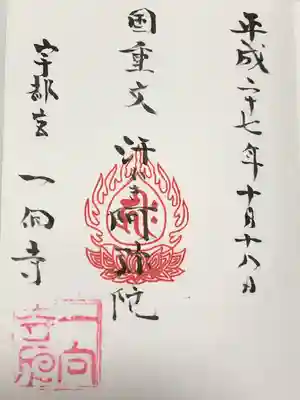 平成二十七年十月十八日
国重文
汗かき阿弥陀
宇都宮
一向寺